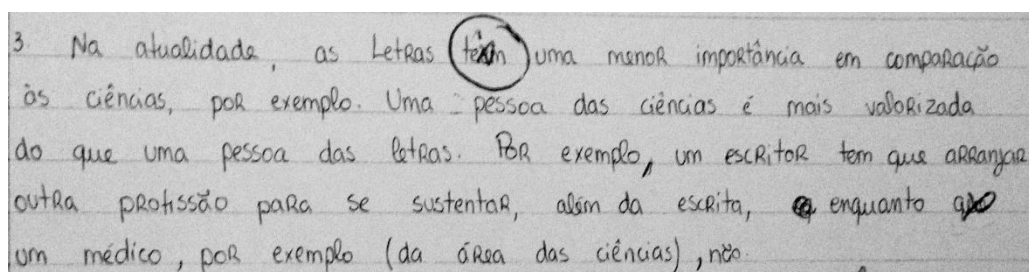 3. Na atualidade, as Letras têm uma menor importância em comparação
às ciências, por exemplo. Uma pessoa das ciências é mais valorizada
do que uma pessoa das letras. Por exemplo, um escritor tem que arranjar
outra profissão para se sustentar, além da escrita, enquanto
um médico, por exemplo (da área das ciências), não.